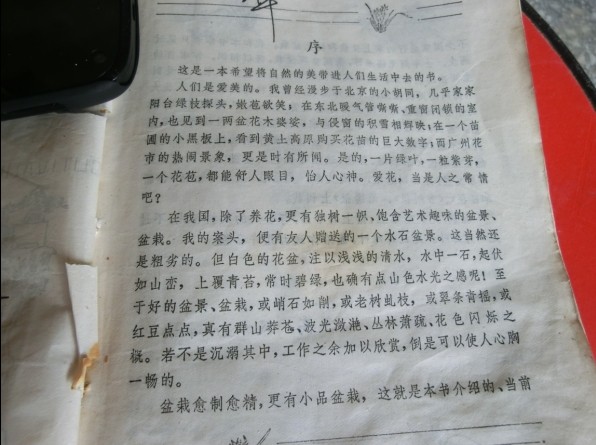 序
这是一本希望将自然的美带进人们生活中去的书。
人们是爱美的。我曾经漫步于北京的小胡同，几乎家家
阳台绿枝探头，嫩苞欲笑；在东北暖气管嘶嘶、重窗闭锁的室
内，也见到一两盆花木婆娑，与侵窗的积雪相辉映；在一个苗
圃的小黑板上，看到黄土高原购买花苗的巨大数字；而广州花
市的热闹景象，更是时有所闻。是的，一片绿叶，一粒紫芽，
一个花苞，都能俘人眼目，怡人心神。爱花，当是人之常情
吧？
在我国，除了养花，更有独树一帜、饱含艺术趣味的盆景、
盆栽。我的案头，便有友人赠送的一个水石盆景。这当然还
是粗劣的。但白色的花盆，注以浅浅的清水，水中一石，起伏
如山峦，上覆青苔，常时碧绿，也确有点山色水光之感呢！至
于好的盆景、盆栽，或峭石如削，或老树虬枝，或翠条青摇，或
红豆点点，真有群山莽苍、波光潋滟、丛林萧疏、花色闪烁之
概。若不是沉溺其中，工作之余加以欣赏，倒是可以使人心胸
一畅的。
盆栽愈制愈精，更有小品盆栽，这就是本书介绍的、当前